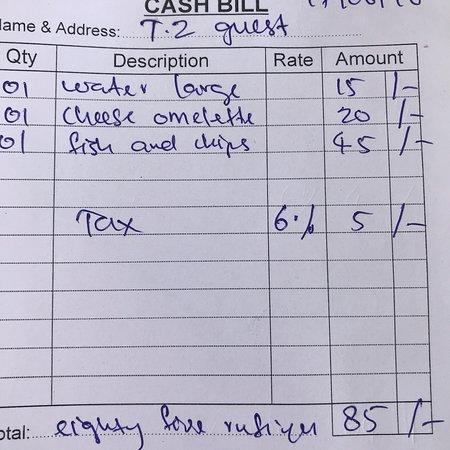 CASH BILL
Name & Address: T.2 guest
Qty Description Rate Amount
01 water large 15 /-
01 cheese omelette 20 /-
01 fish and chips 45 /-
Tax 6% 5 /-
otal: eighty five rufiyaa 85 /-